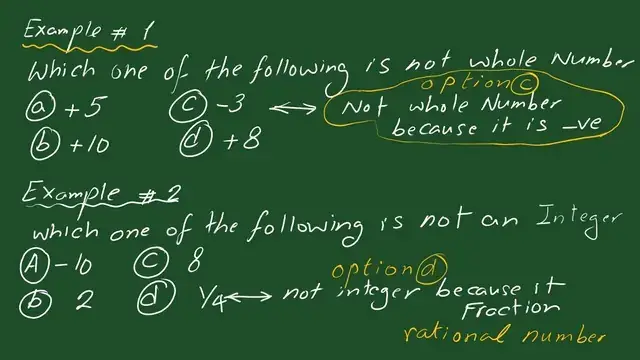 Example # 1
Which one of the following is not whole Number
option c
a +5 c -3 ↔ Not whole Number
because it is -ve
b +10 d +8
Example # 2
which one of the following is not an Integer
A -10 c 8
option d
b 2 d 1/4 ↔ not integer because it
Fraction
rational number